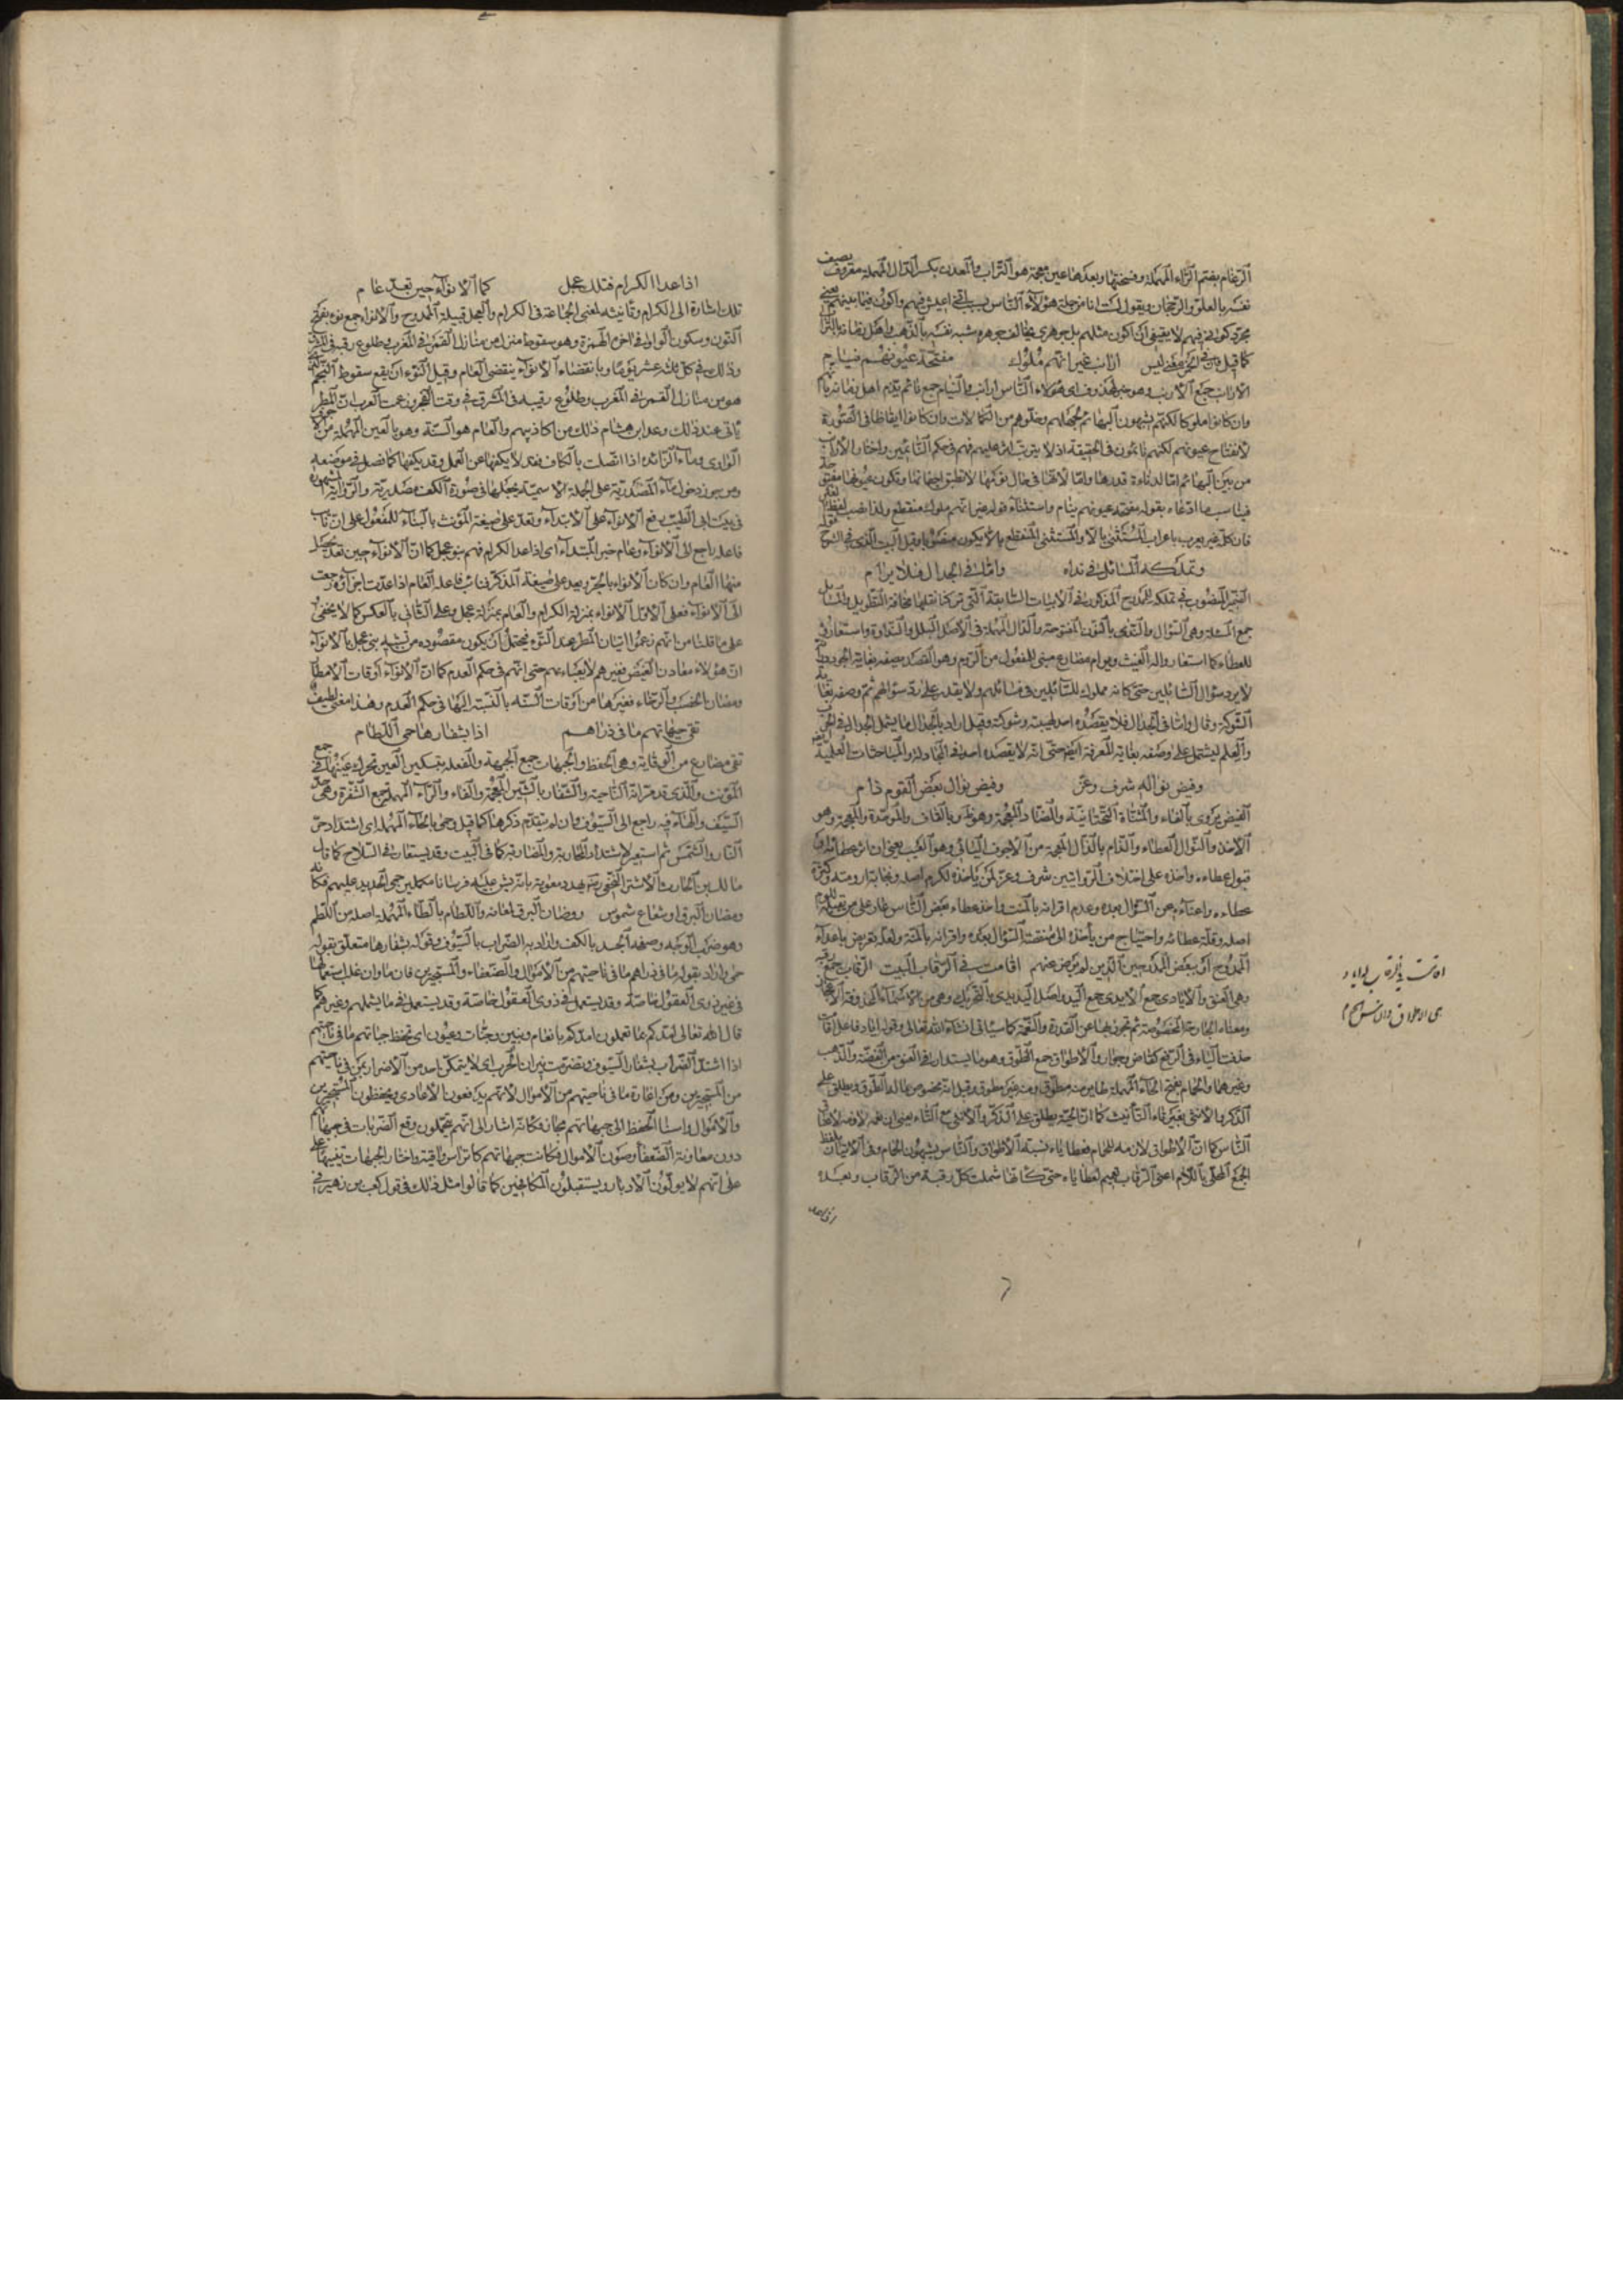 الرغام بفتح الراء المهملة وفتحها وبعدها غين معجمة هو التراب والمعدن بكسر الدال المهملة معروف يصف
نفسه بالعلو والرجحان ويقول لست انا من جملة هؤلاء الناس بسبب اني اعيش فيهم واكون فيما بينهم يعني
مجرد كوني فيهم لا يقتضي ان اكون مثلهم بل جوهري يخالف جوهرهم شبه نفسه بالذهب واهل زمانه بالتراب
كما قيل ارانب غير انهم ملوك مفتحة عيونهم نيام
الارانب جمع الارنب وهو خبر لمحذوف اي هؤلاء الناس ارانب والنيام جمع نائم
وان كانوا ملوكا لكنهم يشبهون البهائم لجهلهم وخلوهم من الكمالات وان كانوا ايقاظا في الصورة
لانفتاح عيونهم لكنهم نائمون في الحقيقة اذ لا يترتب اثر عليهم فهم في حكم النائمين واختار الارانب
من بين البهائم اما لدناءة قدرها واما لانها في حال نومها لا تنطبق اجفانها وتكون عيونها مفتوحة
فيناسب ما ادعاه بقوله مفتحة عيونهم نيام واستثناء قوله غير انهم ملوك منقطع ولذا نصب لفظ غير
فان كلمة غير يعرب باعراب المستثنى بالا والمستثنى المنقطع بالا يكون منصوبا وقبل البيت الذي في الشرح قوله
وتملكه المسائل في نداه واما في الجدال فلا يرام
الضمير المنصوب في تملكه للممدوح المذكور في الابيات السابقة التي تركنا نقلها مخافة التطويل والمسائل
جمع المسئلة وهي السؤال والندى بالنون المفتوحة والدال المهملة في الاصل البلل والنداوة واستعارة
للعطاء كما استعاروا له الغيث ويرام مضارع مبني للمفعول من الروم وهو القصد يصفه بغاية الجود
لا يرد سؤال السائلين حتى كانه مملوك للسائلين في مسائلهم ولا يقدر على رد سؤالهم ثم وصفه بغاية
الشوكة وقال واما في الجدال فلا يقصده احد لهيبته وشوكته وقيل اراد بالجدال ما يشمل الجدال في الحرب
والعلم ليشتمل على وصفه بغاية المعرفة ايضا حتى انه لا يقصده احد في المجادلة والمباحثات العلمية
وفيض نواله شرف وعز وفيض نوال بعض القوم ذام
الفيض يروى بالفاء والمثناة التحتانية والضاد المعجمة وهو وبالقاف والموحدة والمعجمة وهو
الاخذ والنوال العطاء والذام بالذال المعجمة من الاجوف اليائي وهو العيب يعني ان
قبول عطاءه واخذه على اختلاف الروايتين شرف وعز لمن ياخذه لكرم اصله ونجابة ارومته وكثرة
عطاءه واغناءه عن السؤال بعده وعدم اقرانه بالمنة واخذ عطاء بعض الناس عار على من
اصله وقلة عطائه واحتياج من يأخذه الى منقصة السؤال بعده واقرانه بالمنة ولعله تعريض باعداء
الممدوح او ببعض المدحين الذين لم يرض عنهم اقامت في الرقاب البيت الرقاب جمع رقبة
وهي العنق والايادي جمع الايدي جمع اليد واصل اليد يدي بالتحريك وهي من الاسماء المحذوفة الاعجاز
ومعناه الجارحة المخصوصة ثم تجوز بها عن القدرة والنعمة كما سياتي انشاء الله تعالى وقوله اياد فاعل اقامت
حذفت الياء في الرسم كقاض وجوار والاطواق جمع الطوق وهو ما يستدار في العنق من الفضة والذهب
وغيرهما والحمام بفتح الحاء المهملة طاير منه مطوق ومنه غير مطوق وقيل انه مخصوص بما له الطوق ويطلق على
الذكر والانثى بغير تاء التأنيث كما ان الحية يطلق على الذكر والانثى مع التاء يعني ان نعمه لازمة لاعناق
الناس كما ان الاطواق لازمة للحمام فعطاياه بمنزلة الاطواق والناس يشبهون الحمام وفي الاتيان بلفظ
الجمع المحلى باللام اعني الرقاب تعميم لعطاياه حتى كانها شملت كل رقبة من الرقاب وبعده
اذا عد
اقامت في الرقاب له اياد
هي الاطواق والناس الحمام
اذا عد الكرام فتلك عجل كما الانواء حين تعد عام
تلك اشارة الى الكرام وتأنيثه لمعنى الجماعة في الكرام والعجل قبيلة الممدوح والانواء جمع نوء بفتح
النون وسكون الواو في اخره الهمزة وهو سقوط منزل من منازل القمر في المغرب وطلوع رقيبه في المشرق
وذلك في كل ثلثة عشر يوما وبانقضاء الانواء ينقضي العام وقيل النوء ان يقع سقوط النجم الذي
هو من منازل القمر في المغرب وطلوع رقيبه في المشرق في وقت الفجر وزعمت العرب ان المطر
يأتي عند ذلك وعد ابن هشام ذلك من اكاذيبهم والعام هو السنة وهو بالعين المهملة من الاجوف
الواوي وما الزائدة اذا اتصلت بالكاف فقد لا يكفها عن العمل وقد يكفها كما فصل في موضعه
وهو يجوز دخول ما المصدرية على الجملة الاسمية يجعلها في صورة الكف مصدرية والرواية المشهورة
في بيت ابي الطيب رفع الانواء على الابتداء وتعد على صيغة المؤنث بالبناء للمفعول على ان نائب
فاعله راجع الى الانواء وعام خبر المبتداء اي اذا عد الكرام فهم بنو عجل كما ان الانواء حين تعد يحصل
منها العام وان كان الانواء بالجر ويعد على صيغة المذكر فنائب فاعله العام اذا عدت اجزاؤه رجعت
الى الانواء فعلى الاول الانواء بمنزلة الكرام والعام بمنزلة عجل وعلى الثاني بالعكس كما لا يخفى
على ما قلنا من انهم زعموا اتيان المطر عند النوء يحتمل ان يكون مقصوده من تشبيه بني عجل بالانواء
ان هؤلاء معادن الفيض فغيرهم لا يعباء بهم حتى انهم في حكم العدم كما ان الانواء اوقات الامطار
ومضان الخصب والرخاء فغيرها من اوقات السنة بالنسبة اليها في حكم العدم وهذا معنى لطيف
تقي جبهاتهم ما في ذراهم اذا بشفارها حمي اللطام
تقي مضارع من الوقاية وهي الحفظ والجبهات جمع الجبهة والفعلة بتسكين العين تحرك عينها في جمع
المؤنث والذرى قد مر انه الناحية والشفار بالشين المعجمة والفاء والراء المهملة جمع الشفرة وهي حد
السيف والهاء فيه راجع الى السيوف وان لم يتقدم ذكرها كما قيل وحمي بالحاء المهملة اي اشتد من حر
النار والشمس ثم استعير لاشتداد المحاربة والمضاربة كما في البيت وقد يستعار في السلاح كما قال
مالك بن الحارث الاشتر النخعي
ومضان البرق او شعاع شموس ومضان البرق لمعانه واللطام بالطاء المهملة اصله من اللطم
وهو ضرب الوجه وصفحة الجسد بالكف واراد به الضراب بالسيوف وقوله بشفارها متعلق بقوله
حمي واراد بقوله ما في ذراهم ما في ناحيتهم من الاموال والضعفاء والمستجيرين فان ما وان غلب استعمالها
في غير ذوي العقول خاصة وقد يستعمل في ذوي العقول خاصة وقد يستعمل فيما يشملهم وغيرهم كما
قال الله تعالى امدكم بما تعلمون امدكم بانعام وبنين وجنات وعيون اي تحفظ جبهاتهم ما في ناحيتهم
اذا اشتد الضراب بشفار السيوف وتضرمت نيران الحرب اي لا يتمكن احد من الاضرار بمن في ناحيتهم
من المستجيرين ومن اغارة ما في ناحيتهم من الاموال لانهم يدفعون الاعادي ويحفظون المستجيرين
والاموال واسناد الحفظ الى جبهاتهم مجاز فكانه اشار الى انهم يتحملون وقع الضربات في جباههم
دون معاونة الضعفاء وصون الاموال فكانت جبهاتهم كاتراس واقية واختار الجبهات تنبيها على
على انهم لا يولون الادبار ويستقبلون المكافحين كما قالوا مثل ذلك في قول كعب بن زهير في